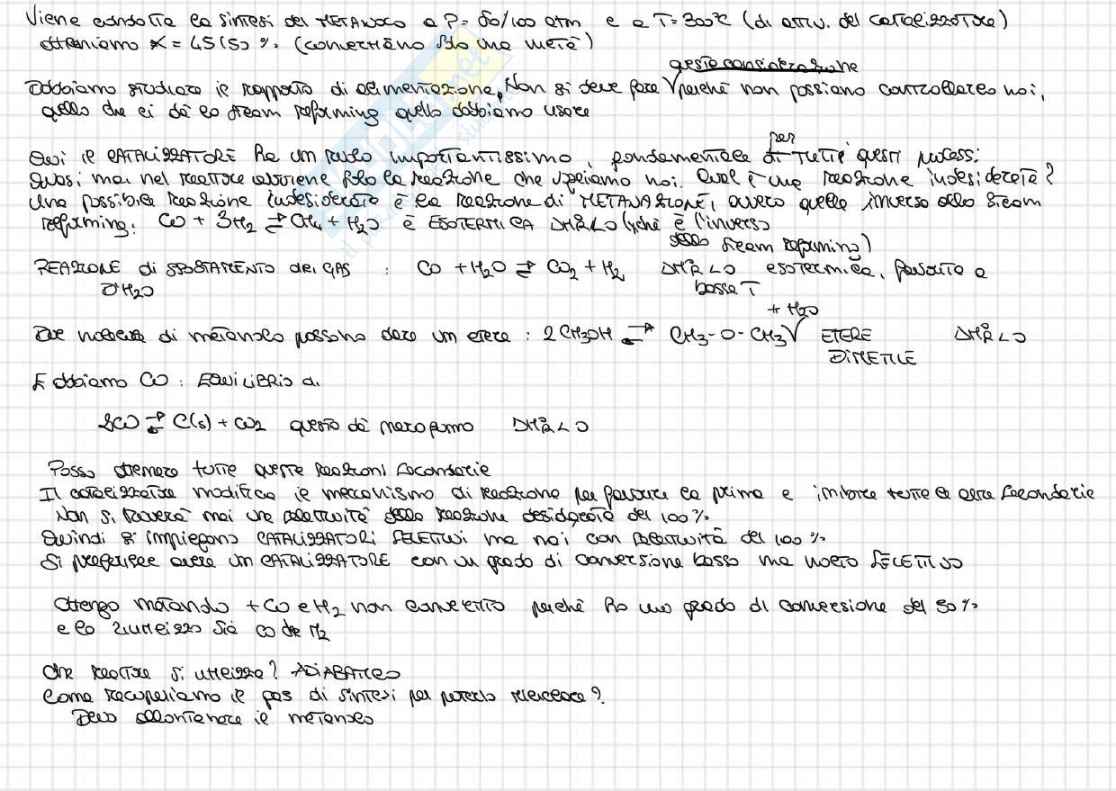 Viene condotta la sintesi del METANOLO a P= 50/100 atm e a T= 300°C (di attiv. del catalizzatore)
otteniamo X = 45/50 % (convertiamo solo una metà)
questa considerazione
Dobbiamo studiare il rapporto di alimentazione, Non si deve fare perché non possiamo controllarlo noi,
quello che ci dà lo steam reforming quello dobbiamo usare
Qui il CATALIZZATORE ha un ruolo importantissimo, fondamentale per tutti questi processi
Quasi mai nel reattore avviene solo la reazione che vogliamo noi. Qual è una reazione indesiderata?
Una possibile reazione indesiderata è la reazione di METANAZIONE, ovvero quella inversa dello steam
reforming: CO + 3H2 ⇄ CH4 + H2O è ESOTERMICA ΔH°R<0 (perché è l'inverso
dello steam reforming)
REAZIONE di SPOSTAMENTO del GAS : CO + H2O ⇄ CO2 + H2 ΔH°R<0 esotermica, favorita a
D'H2O bassa T
+ H2O
Due molecole di metanolo possono dare un etere : 2CH3OH ⇄ CH3-O-CH3 ETERE ΔH°R<0
DIMETILE
E abbiamo CO : EQUILIBRIO di
2CO ⇄ C(s) + CO2 questo dà nerofumo ΔH°R<0
Posso ottenere tutte queste reazioni secondarie
Il catalizzatore modifica il meccanismo di reazione per favorire la prima e inibire tutte le altre secondarie
Non si troverà mai una selettività della reazione desiderata del 100%
Quindi si impiegano CATALIZZATORI SELETTIVI ma mai con selettività del 100 %
Si preferisce avere un CATALIZZATORE con un grado di conversione basso ma molto SELETTIVO
Ottengo metanolo + CO e H2 non convertito perché ho un grado di conversione del 50%
e lo riutilizzo sia CO che H2
Che reattore si utilizza? ADIABATICO
Come recuperiamo il gas di sintesi per poterlo riciclare?
Devo allontanare il metanolo